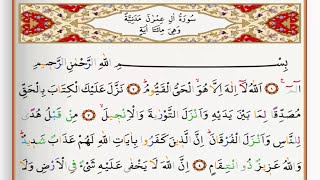 سُورَةُ اٰلِ عِمْرٰنَ مَدَنِيَّةٌ
وَهِيَ مِائَتَا اٰيَةٍ
بِسْــــــمِ اللّٰهِ الرَّحْمٰنِ الرَّحِيمِ
الٓمٓ ۝١ اَللّٰهُ لَٓا اِلٰهَ اِلَّا هُوَ الْحَيُّ الْقَيُّومُ ۝٢ نَزَّلَ عَلَيْكَ الْكِتَابَ بِالْحَقِّ
مُصَدِّقًا لِمَا بَيْنَ يَدَيْهِ وَاَنْزَلَ التَّوْرٰيةَ وَالْاِنْجِيلَ ۝٣ مِنْ قَبْلُ هُدًى
لِلنَّاسِ وَاَنْزَلَ الْفُرْقَانَ اِنَّ الَّذِينَ كَفَرُوا بِاٰيَاتِ اللّٰهِ لَهُمْ عَذَابٌ شَدِيدٌ
وَاللّٰهُ عَزِيزٌ ذُو انْتِقَامٍ ۝٤ اِنَّ اللّٰهَ لَا يَخْفٰى عَلَيْهِ شَيْءٌ فِي الْاَرْضِ وَلَا